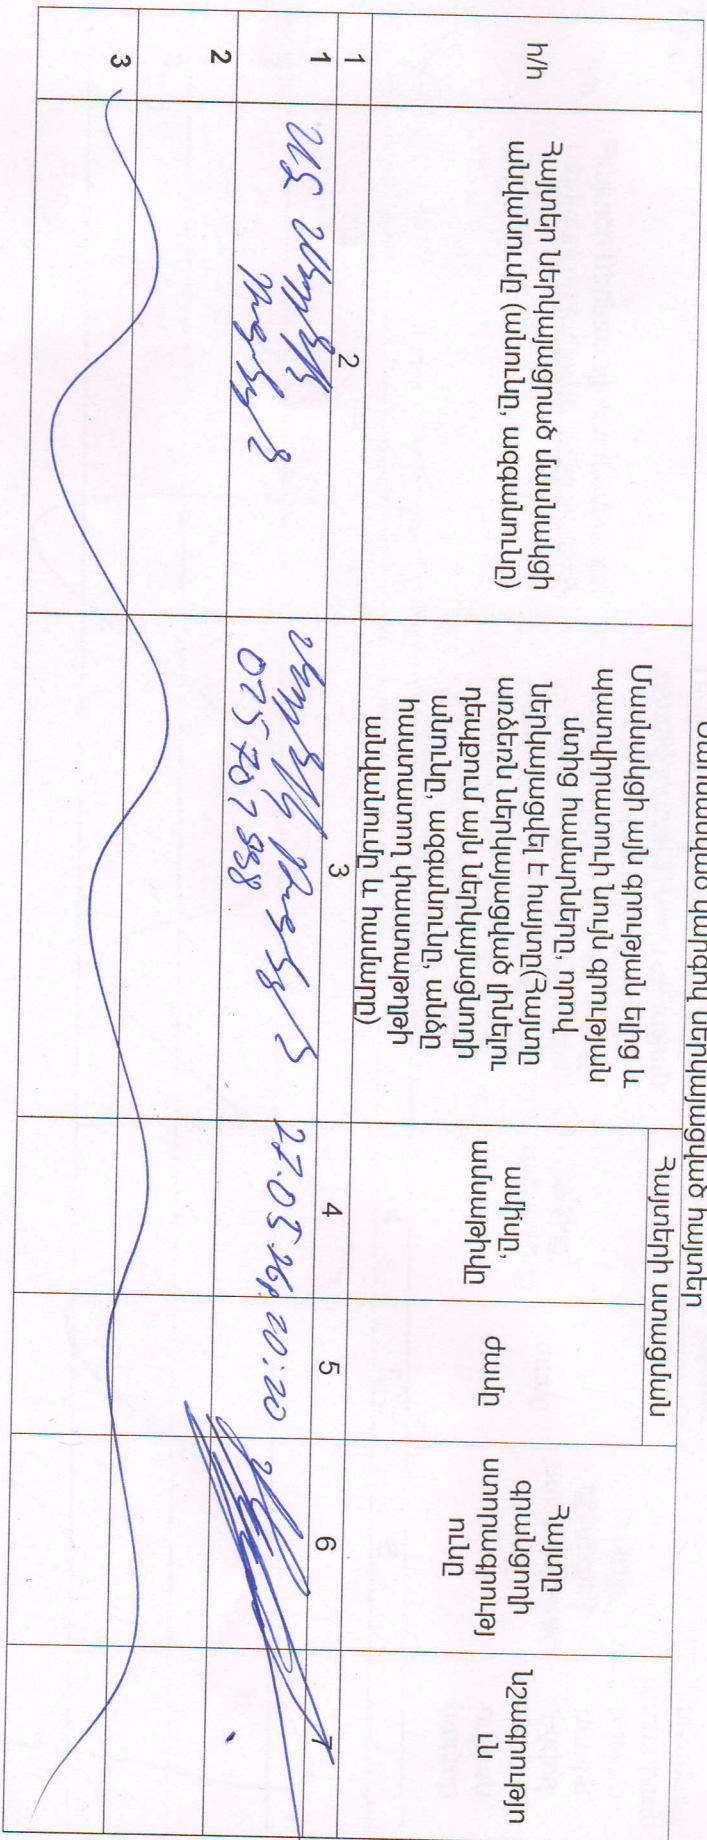 Սահմանված կարգով ներկայացված հայտեր
հ/հ
Հայտեր ներկայացրած մասնակիցների անվանումը (անունը, ազգանունը)
Մասնակցի այն գրության ելից և պատվիրատուի նույն գրության մտից համարները, որով ներկայացվել է հայտը(Հայտը առձեռն ներկայացված լինելու դեպքում այն ներկայացնողի անունը, ազգանունը, անձը հաստատող փաստաթղթի անվանումը և համարը)
Հայտերի ստացման
ամսաթիվը, ամիսը
ժամը
Հայտը գրանցողի ստորագրությունը
Նշագրություն
1
2
3
4
5
6
7
1
ԱՁ
075707858
27.05.26թ.
20:20
2
3